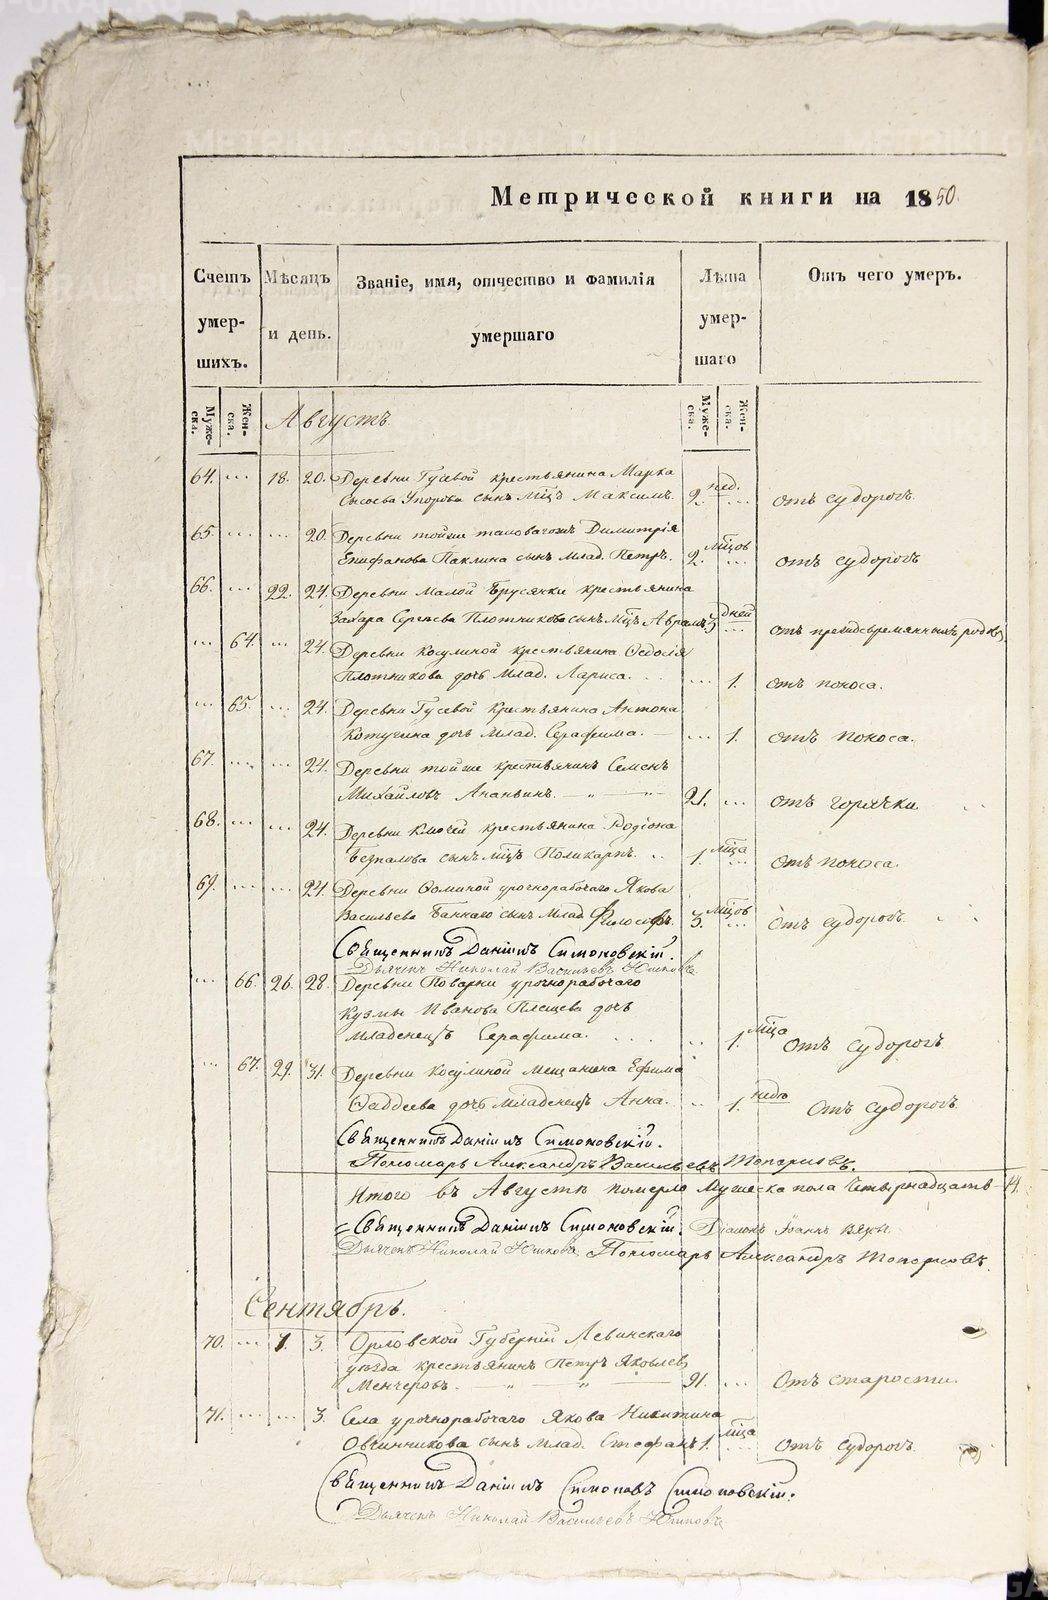 METRIKI.GASO-URAL.RU
Метрической книги на 1850.
Счетъ умершихъ. Мѣсяцъ и день. Званіе, имя, отчество и фамилія умершаго Лѣта умершаго Отъ чего умеръ.
Муже-ска. Жен-ска. Муже-ска. Жен-ска.
Августъ.
64. ... 18. 20. Деревни Гусевой крестьянина Марка
Сысоева Упорова сынъ Мцъ Максимъ. 2. нед. ... отъ судорогъ.
65. ... ... 20. Деревни тойже Димитрія
Епифанова Паклина сынъ млад. Петръ. 2. мцов ... отъ судорогъ
66. ... 22. 24. Деревни Малой Брусянки крестьянина
Захара Сергѣева Плотникова сынъ Мцъ Авраамъ 3 дней ... отъ преждевременныхъ родовъ
... 64. ... 24. Деревни Косулиной крестьянина Ѳедосія
Плотникова дочь млад. Лариса. ... 1. отъ поноса.
... 65. ... 24. Деревни Гусевой крестьянина Антона
Котугина дочь млад. Серафима. ... 1. отъ поноса.
67. ... ... 24. Деревни тойже крестьянинъ Семенъ
Михайловъ Ананьинъ. 21. ... отъ горячки.
68. ... ... 24. Деревни Ключей крестьянина Родіона
Безпалова сынъ мцъ Поликарпъ. 1. мца ... отъ поноса.
69. ... ... 24. Деревни Ѳоминой урочнорабочаго Якова
Васильева Баннаго сынъ млад. Философъ. 3. мцов ... отъ судорогъ.
Священникъ Даніилъ Симоновскій.
Дьячекъ Николай Васильевъ
... 66. 26. 28. Деревни Поварни урочнорабочаго
Кузмы Иванова Плещева дочь
младенецъ Серафима. .. 1. мца отъ судорогъ
... 67. 29. 31. Деревни Косулиной мещанина Ефима
Ѳаддеева дочь младенецъ Анна. .. 1. недѣ отъ судорогъ.
Священникъ Даніилъ Симоновскій.
Пономарь Александръ Васильевъ Топорковъ.
Итого въ Августѣ померло Мужеска пола четырнадцать 14.
Священникъ Даніилъ Симоновскій. Діаконъ Іоаннъ
Дьячекъ Николай Пономарь Александръ Топорковъ.
Сентябрь.
70. ... 1. 3. Орловской Губерніи Ливинскаго
уѣзда крестьянинъ Петръ Яковлевъ
Менчеровъ. 91. ... отъ старости.
71. ... ... 3. Села урочнорабочаго Якова Никитина
Овчинникова сынъ млад. Стефанъ 1. мца ... отъ судорогъ.
Священникъ Даніилъ Симоновъ Симоновскій.
Дьячекъ Николай Васильевъ